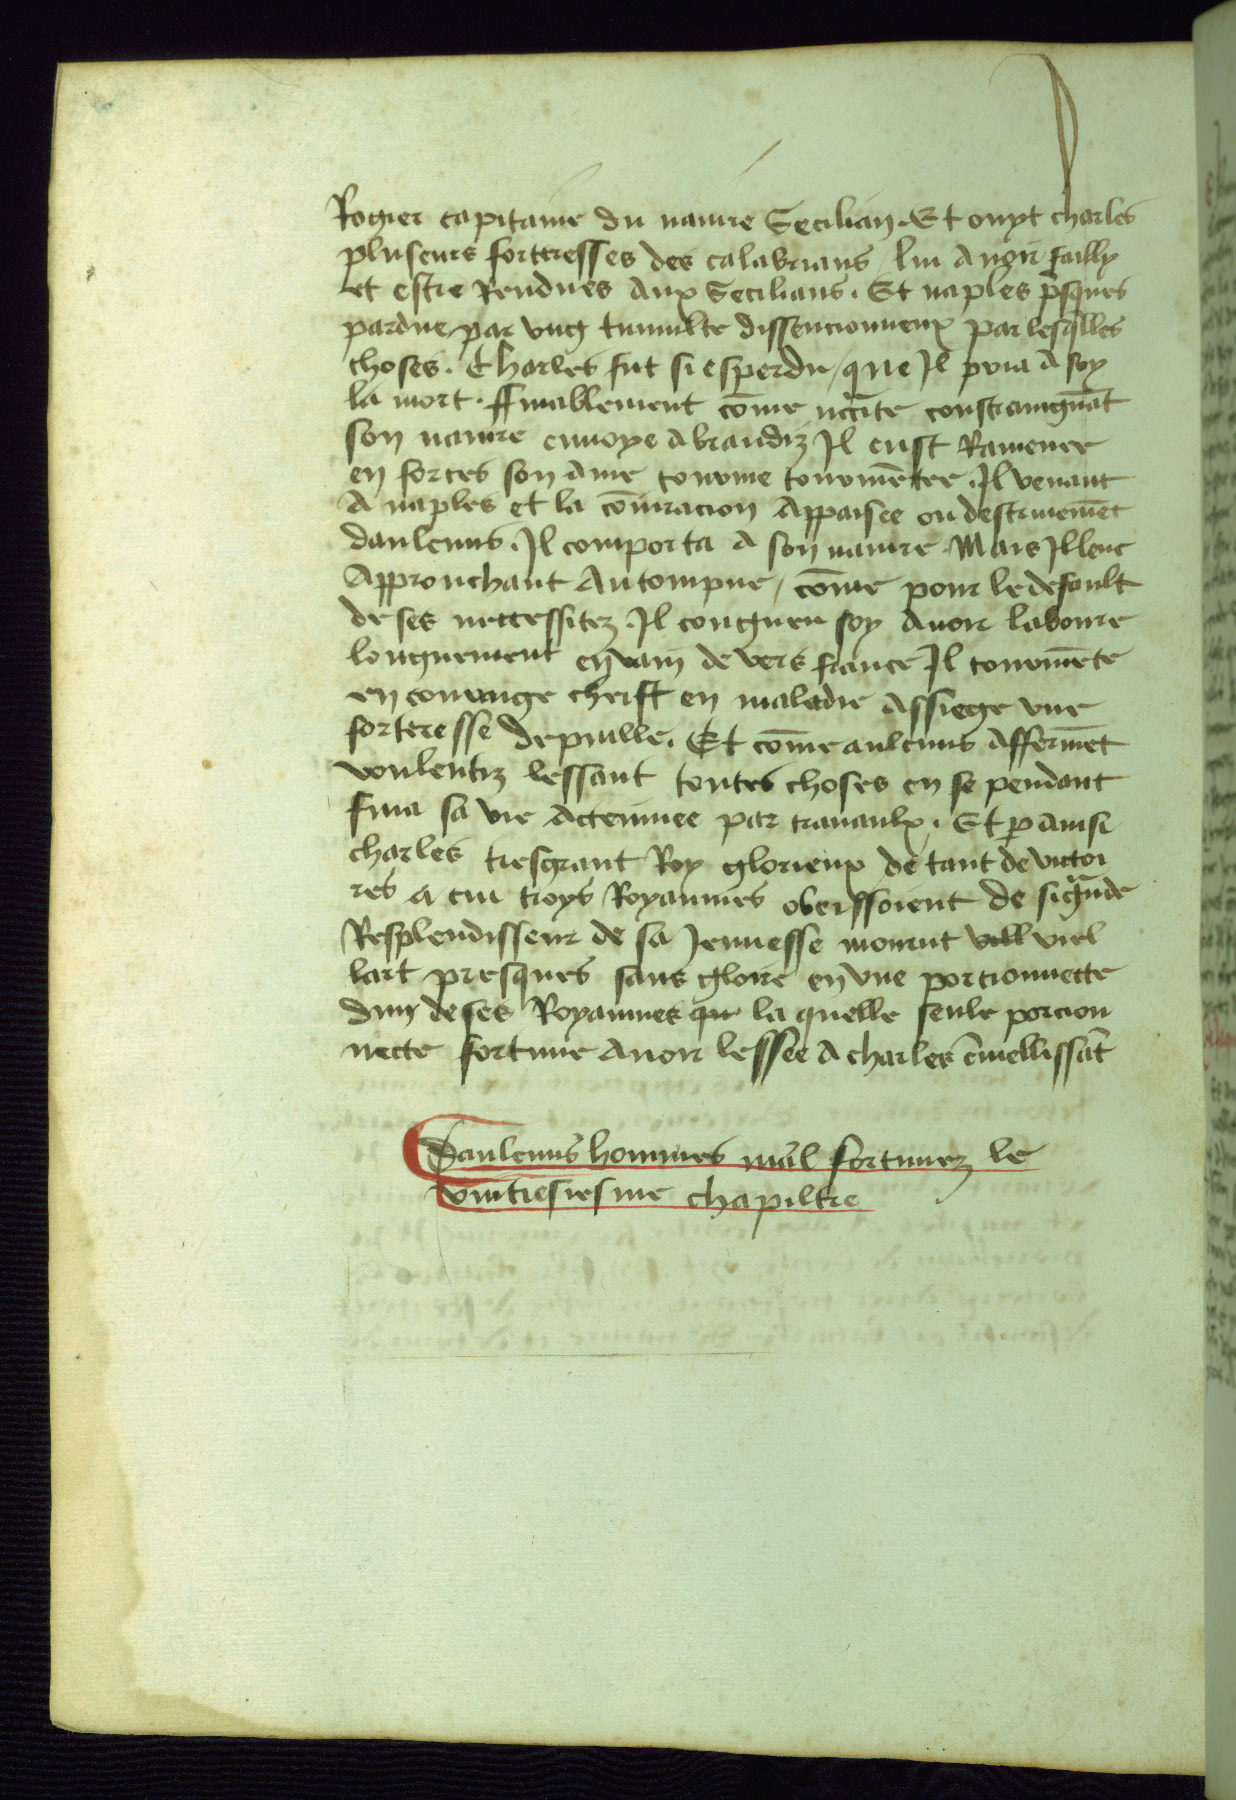 Rogier capitaine du nauire Secilian. Et ouyt charles
pluseurs fortresses des calabrians / lui auoir failly
et estre Rendues aux Secilians. Et naples p̃sques
pardue / par vng tumulte dissencionneux par lesq̃lles
choses. Charles fut si esperdu / que Il pria a soy
la mort. ffinablement cõme constraingnãt
son nauire enuoye a brandiz Il eust Ramenee
en forces son ame comme tourmẽtee. Il venant
A naples et la cõiuracion Appaisee ou destruiemẽt
daulcuns. Il comporta a son nauire. Mais Illeuc
Approuchant Autompne / cõme pour le default
de ses neccessitez. Il congneu soy auoir laboure
longuement en vain de vers france Il tourmẽte
en courage cheist en maladie Assiege vne
forteresse de puille. Et cõme aulcuns Affermẽt
voulentiz lessant toutes choses en se pendant
fina sa vie Actenuee par trauaulx. Et p ainsi
charles tresgrant Roy glorieux de tant de victoi
res a cui troys Royaumes obeissoient de si grãde
Resplendisseur de sa Jeunesse mourut viel
lart presques sans gloire en vne porcionnette
dun de ses Royaumes la quelle seule porcion
necte fortune auoir lessee A charles ẽuiellissãt
Daulcuns hommes mal fortunez le
vintiesiesme chapiltre